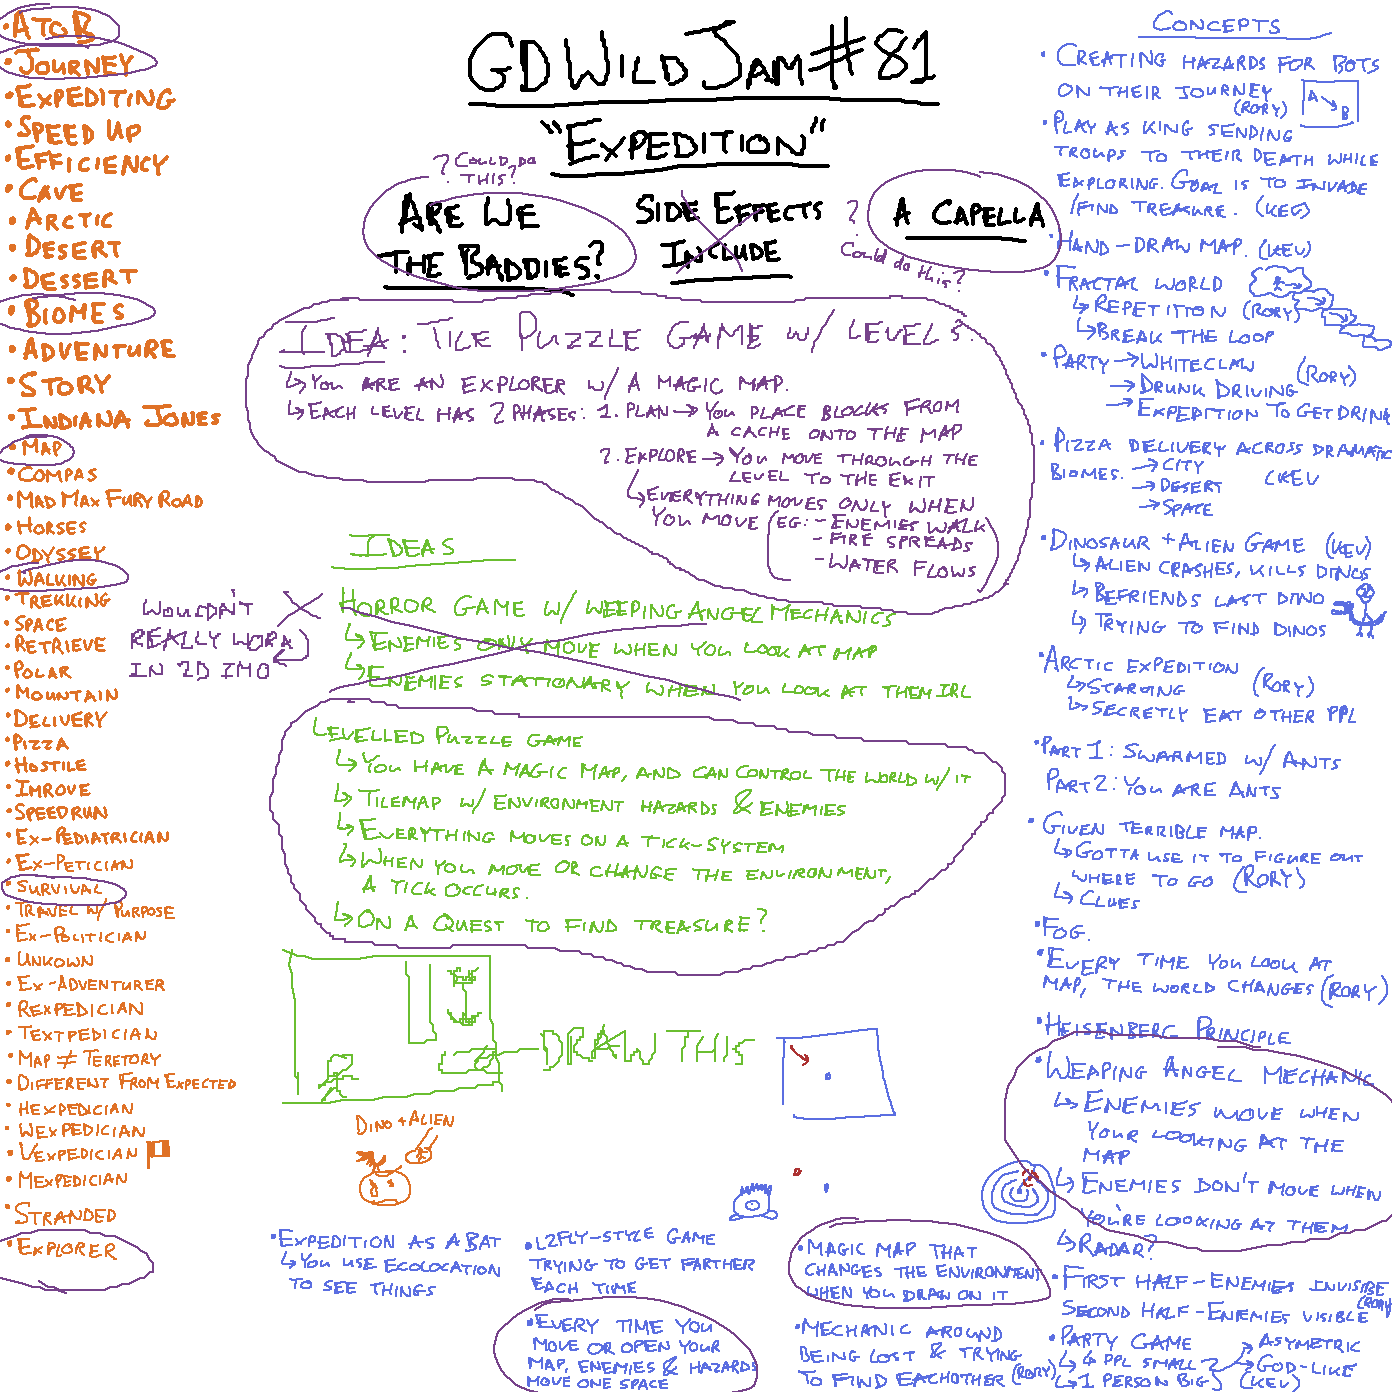 • A TO B
• JOURNEY
• EXPEDITING
• SPEED UP
• EFFICIENCY
• CAVE
• ARCTIC
• DESERT
• DESSERT
• BIOMES
• ADVENTURE
• STORY
• INDIANA JONES
• MAP
• COMPAS
• MAD MAX FURY ROAD
• HORSES
• ODYSSEY
• WALKING
• TREKKING
• SPACE
• RETRIEVE
• POLAR
• MOUNTAIN
• DELIVERY
• PIZZA
• HOSTILE
• IMROVE
• SPEEDRUN
• EX-PEDIATRICIAN
• EX-PETICIAN
• SURVIVAL
• TRAVEL W/ PURPOSE
• EX-POLITICIAN
• UNKOWN
• EX-ADVENTURER
• REXPEDICIAN
• TEXTPEDICIAN
• MAP ≠ TERETORY
• DIFFERENT FROM EXPECTED
• HEXPEDICIAN
• WEXPEDICIAN
• VEXPEDICIAN
• MEXPEDICIAN
• STRANDED
• EXPLORER
GD WILD JAM #81
"EXPEDITION"
? COULD DO
THIS?
ARE WE
THE BADDIES?
SIDE EFFECTS
INCLUDE
?
A CAPELLA
Could do this?
IDEA: TILE PUZZLE GAME W/ LEVELS.
↳ YOU ARE AN EXPLORER W/ A MAGIC MAP.
↳ EACH LEVEL HAS 2 PHASES: 1. PLAN → YOU PLACE BLOCKS FROM
A CACHE ONTO THE MAP
2. EXPLORE → YOU MOVE THROUGH THE
LEVEL TO THE EXIT
↳ EVERYTHING MOVES ONLY WHEN
YOU MOVE (EG: - ENEMIES WALK
- FIRE SPREADS
- WATER FLOWS
IDEAS
WOULDN'T
REALLY WORK
IN 2D IMO
HORROR GAME W/ WEEPING ANGEL MECHANICS
↳ ENEMIES ONLY MOVE WHEN YOU LOOK AT MAP
↳ ENEMIES STATIONARY WHEN YOU LOOK AT THEM IRL
LEVELLED PUZZLE GAME
↳ YOU HAVE A MAGIC MAP, AND CAN CONTROL THE WORLD W/ IT
↳ TILEMAP W/ ENVIRONMENT HAZARDS & ENEMIES
↳ EVERYTHING MOVES ON A TICK-SYSTEM
↳ WHEN YOU MOVE OR CHANGE THE ENVIRONMENT,
A TICK OCCURS.
↳ ON A QUEST TO FIND TREASURE?
DRAW THIS
DINO + ALIEN
• EXPEDITION AS A BAT
↳ YOU USE ECOLOCATION
TO SEE THINGS
• L2FLY-STYLE GAME
TRYING TO GET FARTHER
EACH TIME
• EVERY TIME YOU
MOVE OR OPEN YOUR
MAP, ENEMIES & HAZARDS
MOVE ONE SPACE
• MAGIC MAP THAT
CHANGES THE ENVIRONMENT
WHEN YOU DRAW ON IT
• MECHANIC AROUND
BEING LOST & TRYING
TO FIND EACHOTHER (RORY)
CONCEPTS
• CREATING HAZARDS FOR BOTS
ON THEIR JOURNEY
(RORY)
A
B
• PLAY AS KING SENDING
TROUPS TO THEIR DEATH WHILE
EXPLORING. GOAL IS TO INVADE
/FIND TREASURE. (KEV)
• HAND-DRAW MAP. (KEV)
• FRACTAL WORLD
↳ REPETITION (RORY)
↳ BREAK THE LOOP
• PARTY → WHITECLAW (RORY)
→ DRUNK DRIVING
→ EXPEDITION TO GET DRINK
• PIZZA DELIVERY ACROSS DRAMATIC
BIOMES. → CITY (KEV
→ DESERT
→ SPACE
• DINOSAUR + ALIEN GAME (KEV)
↳ ALIEN CRASHES, KILLS DINOS
↳ BEFRIENDS LAST DINO
↳ TRYING TO FIND DINOS
• ARCTIC EXPEDITION (RORY)
↳ STARVING
↳ SECRETLY EAT OTHER PPL
• PART 1: SWARMED W/ ANTS
PART 2: YOU ARE ANTS
• GIVEN TERRIBLE MAP.
↳ GOTTA USE IT TO FIGURE OUT
WHERE TO GO (RORY)
↳ CLUES
• FOG.
• EVERY TIME YOU LOOK AT
MAP, THE WORLD CHANGES (RORY)
• HEISENBERG PRINCIPLE
• WEAPING ANGEL MECHANIC
↳ ENEMIES MOVE WHEN
YOUR LOOKING AT THE
MAP
↳ ENEMIES DON'T MOVE WHEN
YOU'RE LOOKING AT THEM
↳ RADAR?
• FIRST HALF - ENEMIES INVISIBLE
(RORY)
SECOND HALF - ENEMIES VISIBLE
• PARTY GAME → ASYMETRIC
↳ 4 PPL SMALL ? → GOD-LIKE
↳ 1 PERSON BIG (KEV)